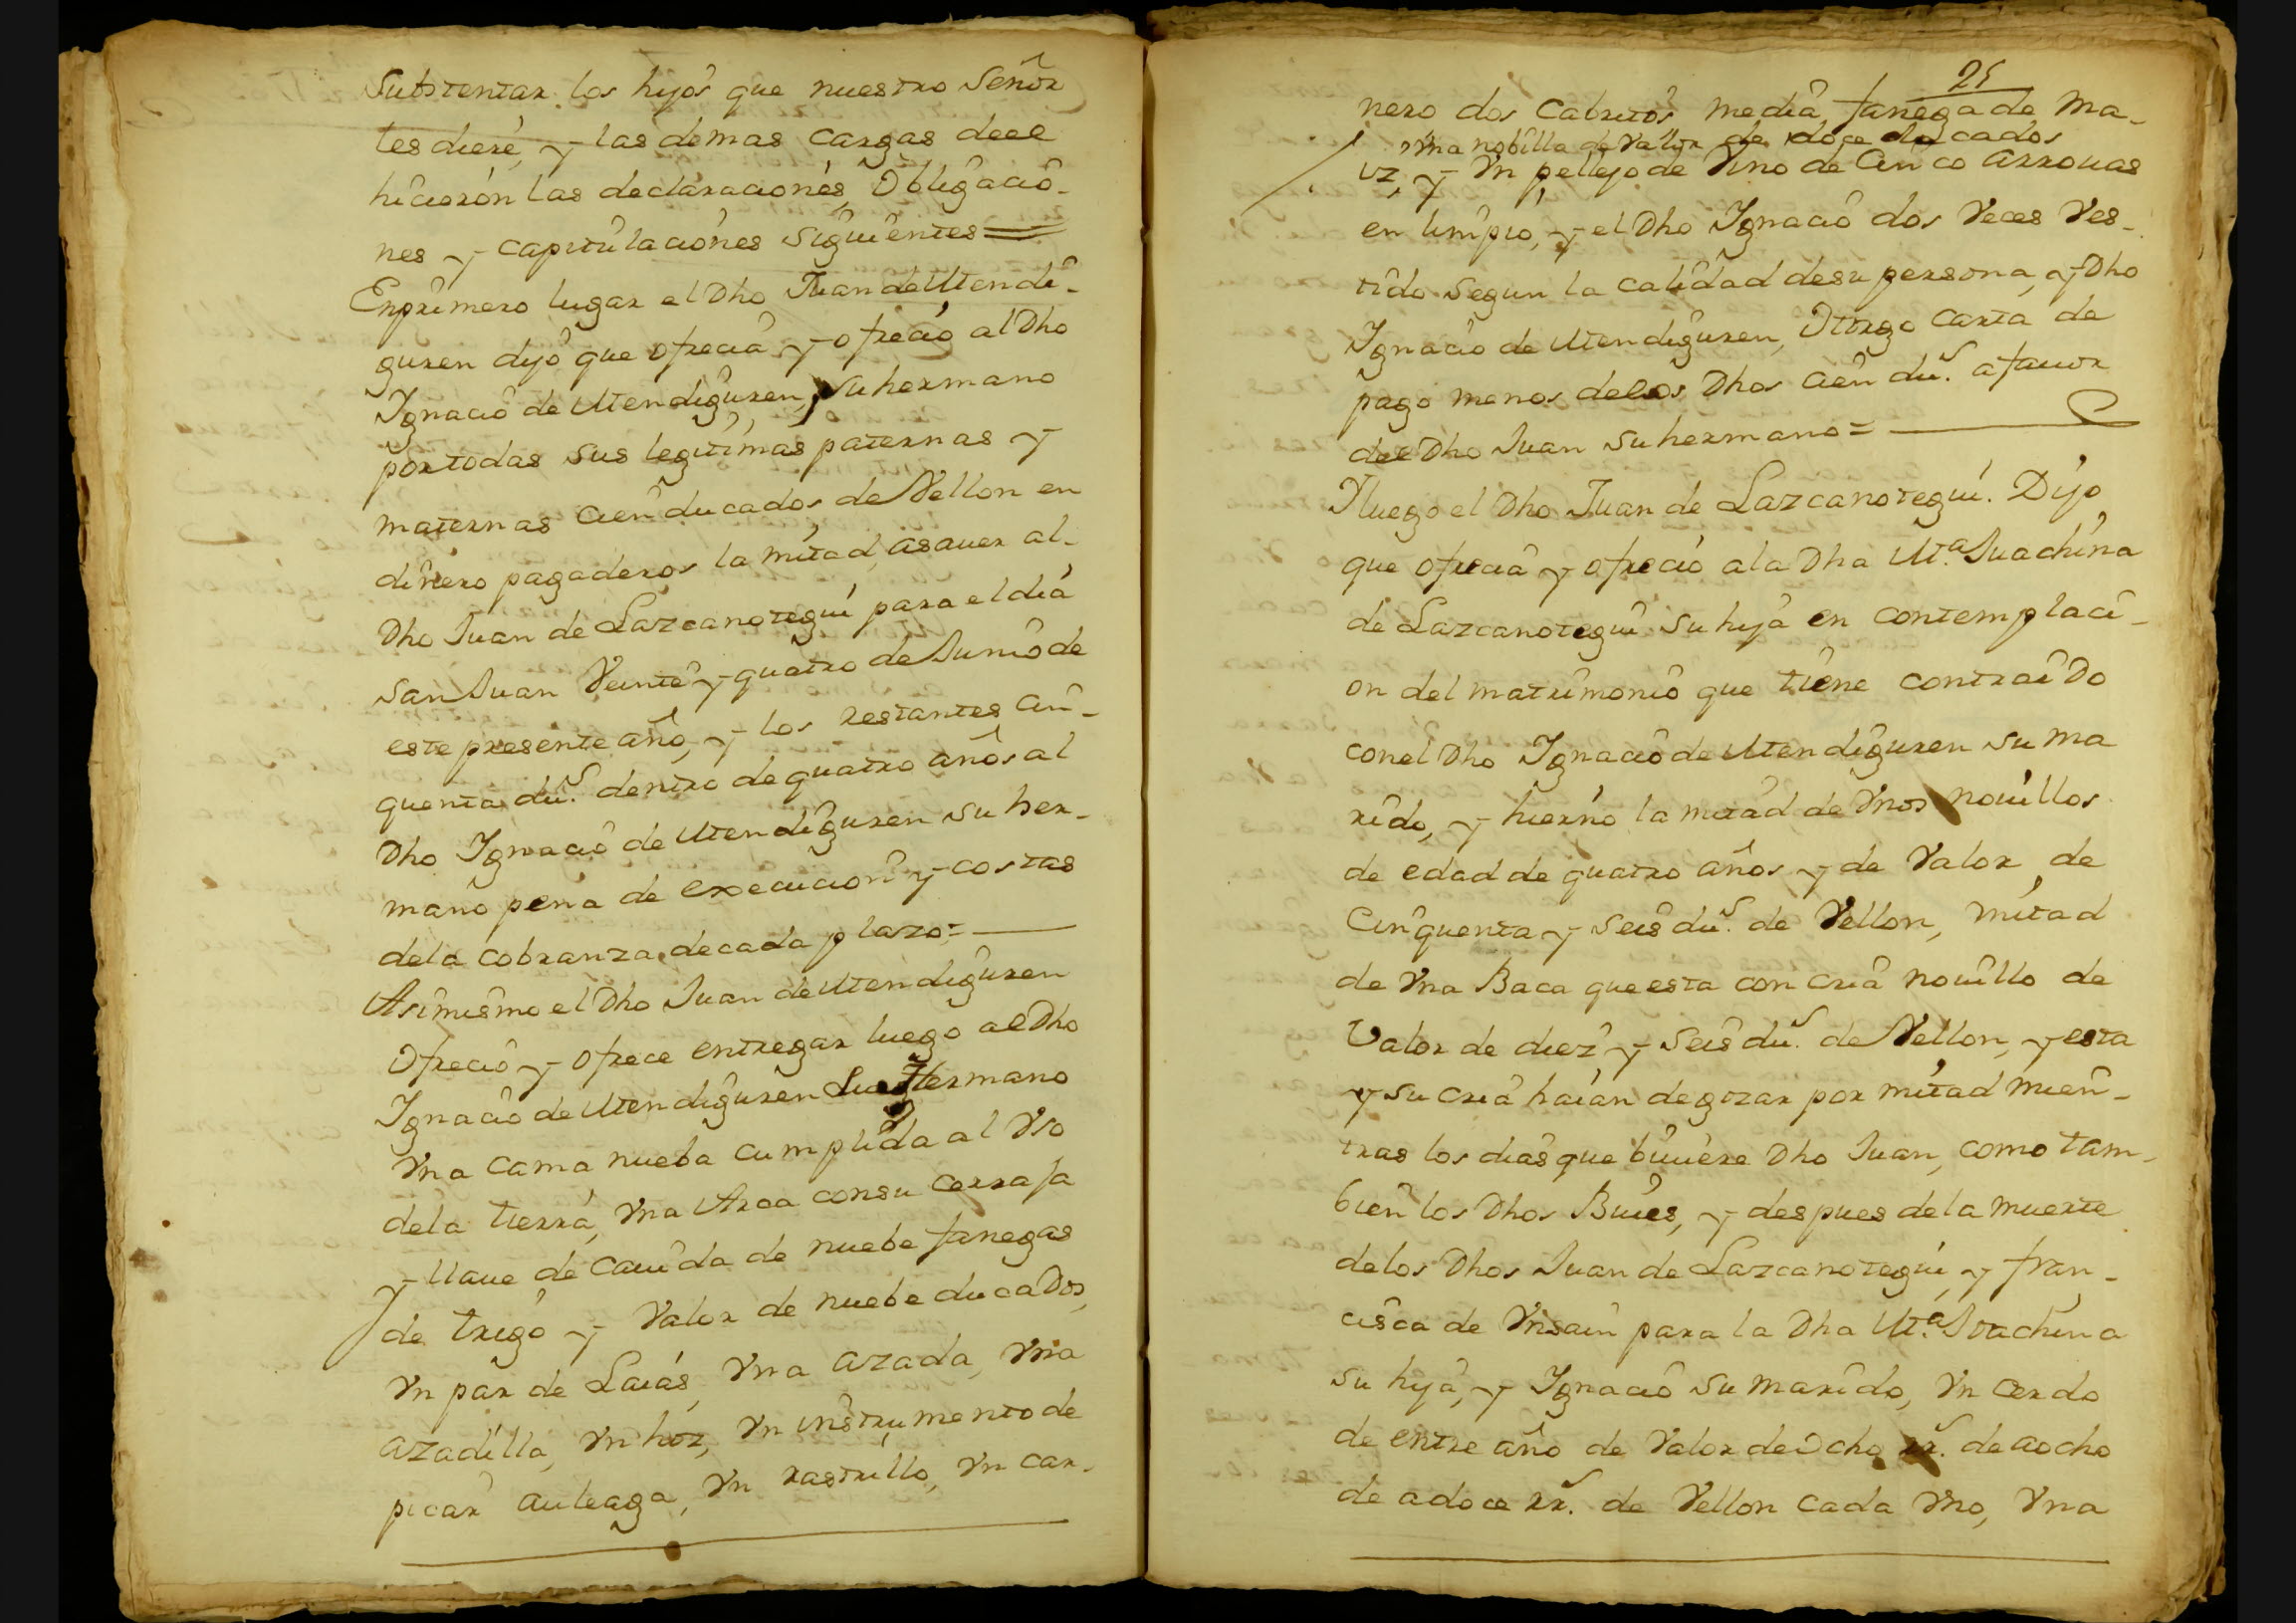 Substentar los hijos que nuestro Señor
les diere, y las demas cargas deel
hicieron las declaraciones, Obligacio-
nes y capitulaciones siguientes =
En primero lugar el Dho Juan de Utendi-
guren dijo que ofrecia y ofrecio al Dho
Ignacio de Utendiguren, su hermano
por todas sus legitimas paternas y
maternas cien ducados de Vellon en
dinero pagaderos la mitad, asauer al
Dho Juan de Lazcanotegui para el dia
San Juan Veinte y quatro de Junio de
este presente año, y los restantes cin-
quenta dus. dentro de quatro años al
Dho Ignacio de Utendiguren su her-
mano pena de execucion y costas
dela cobranza de cada plazo =
Asimismo el Dho Juan de Utendiguren
Ofrecio y ofrece entregar luego al Dho
Ignacio de Utendiguren su Hermano
Vna cama nueba cumplida al Vso
dela tierra, Vna Arca con su cerraja
y llaue de cauida de nuebe fanegas
de trigo y Valor de nuebe ducados,
Vn par de Laias, Vna azada, Vna
azadilla, Vn hoz, Vn instrumento de
picar auleaga, Vn rastrillo, Vn car-
25
nero dos Cabritos media fanega de Ma-
Vna nobilla de Valor de doce ducados
iz, y Vn pellejo de Vino de Cinco arrouas
en limpio, y el Dho Ignacio dos Veces Ves-
tido segun la calidad de su persona, y Dho
Ignacio de Utendiguren, Otorgo carta de
pago menos delos Dhos cien dus. a fauor
del Dho Juan su hermano =
Y luego el Dho Juan de Lazcanotegui. Dijo
que ofrecia y ofrecio ala Dha Ma. Juachina
de Lazcanotegui su hija en contemplaci-
on del matrimonio que tiene contraido
con el Dho Ignacio de Utendiguren su ma
rido, y hierno la mitad de Vnos nouillos
de edad de quatro años y de Valor de
Cinquenta y seis dus. de Vellon, mitad
de Vna Baca que esta con cria nouillo de
Valor de diez y seis dus. de Vellon, y esta
y su cria haian de gozar por mitad mien-
tras los dias que biuiere Dho Juan, como tam-
bien los Dhos Buies, y despues dela muerte
delos Dhos Juan de Lazcanotegui, y fran-
cisca de para la Dha Ma. Joachina
su hija, y Ignacio su marido, Vn cerdo
de entre año de Valor de Ocho de aocho
de adoce rs. de Vellon cada Vno, Vna